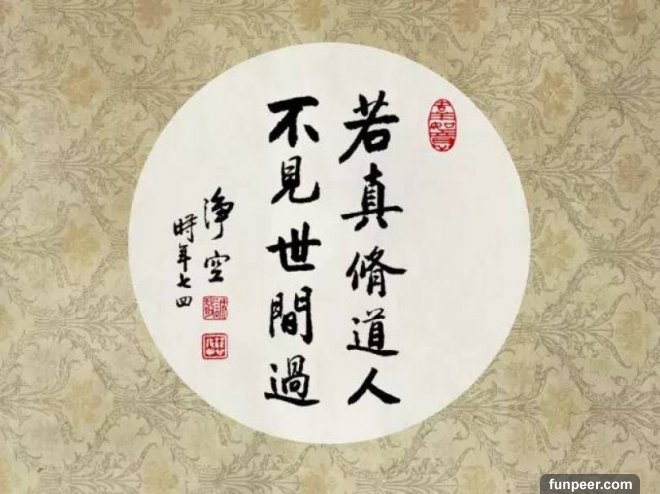 若真脩道人
不見世間過
淨空
時年七四
funpeer.com